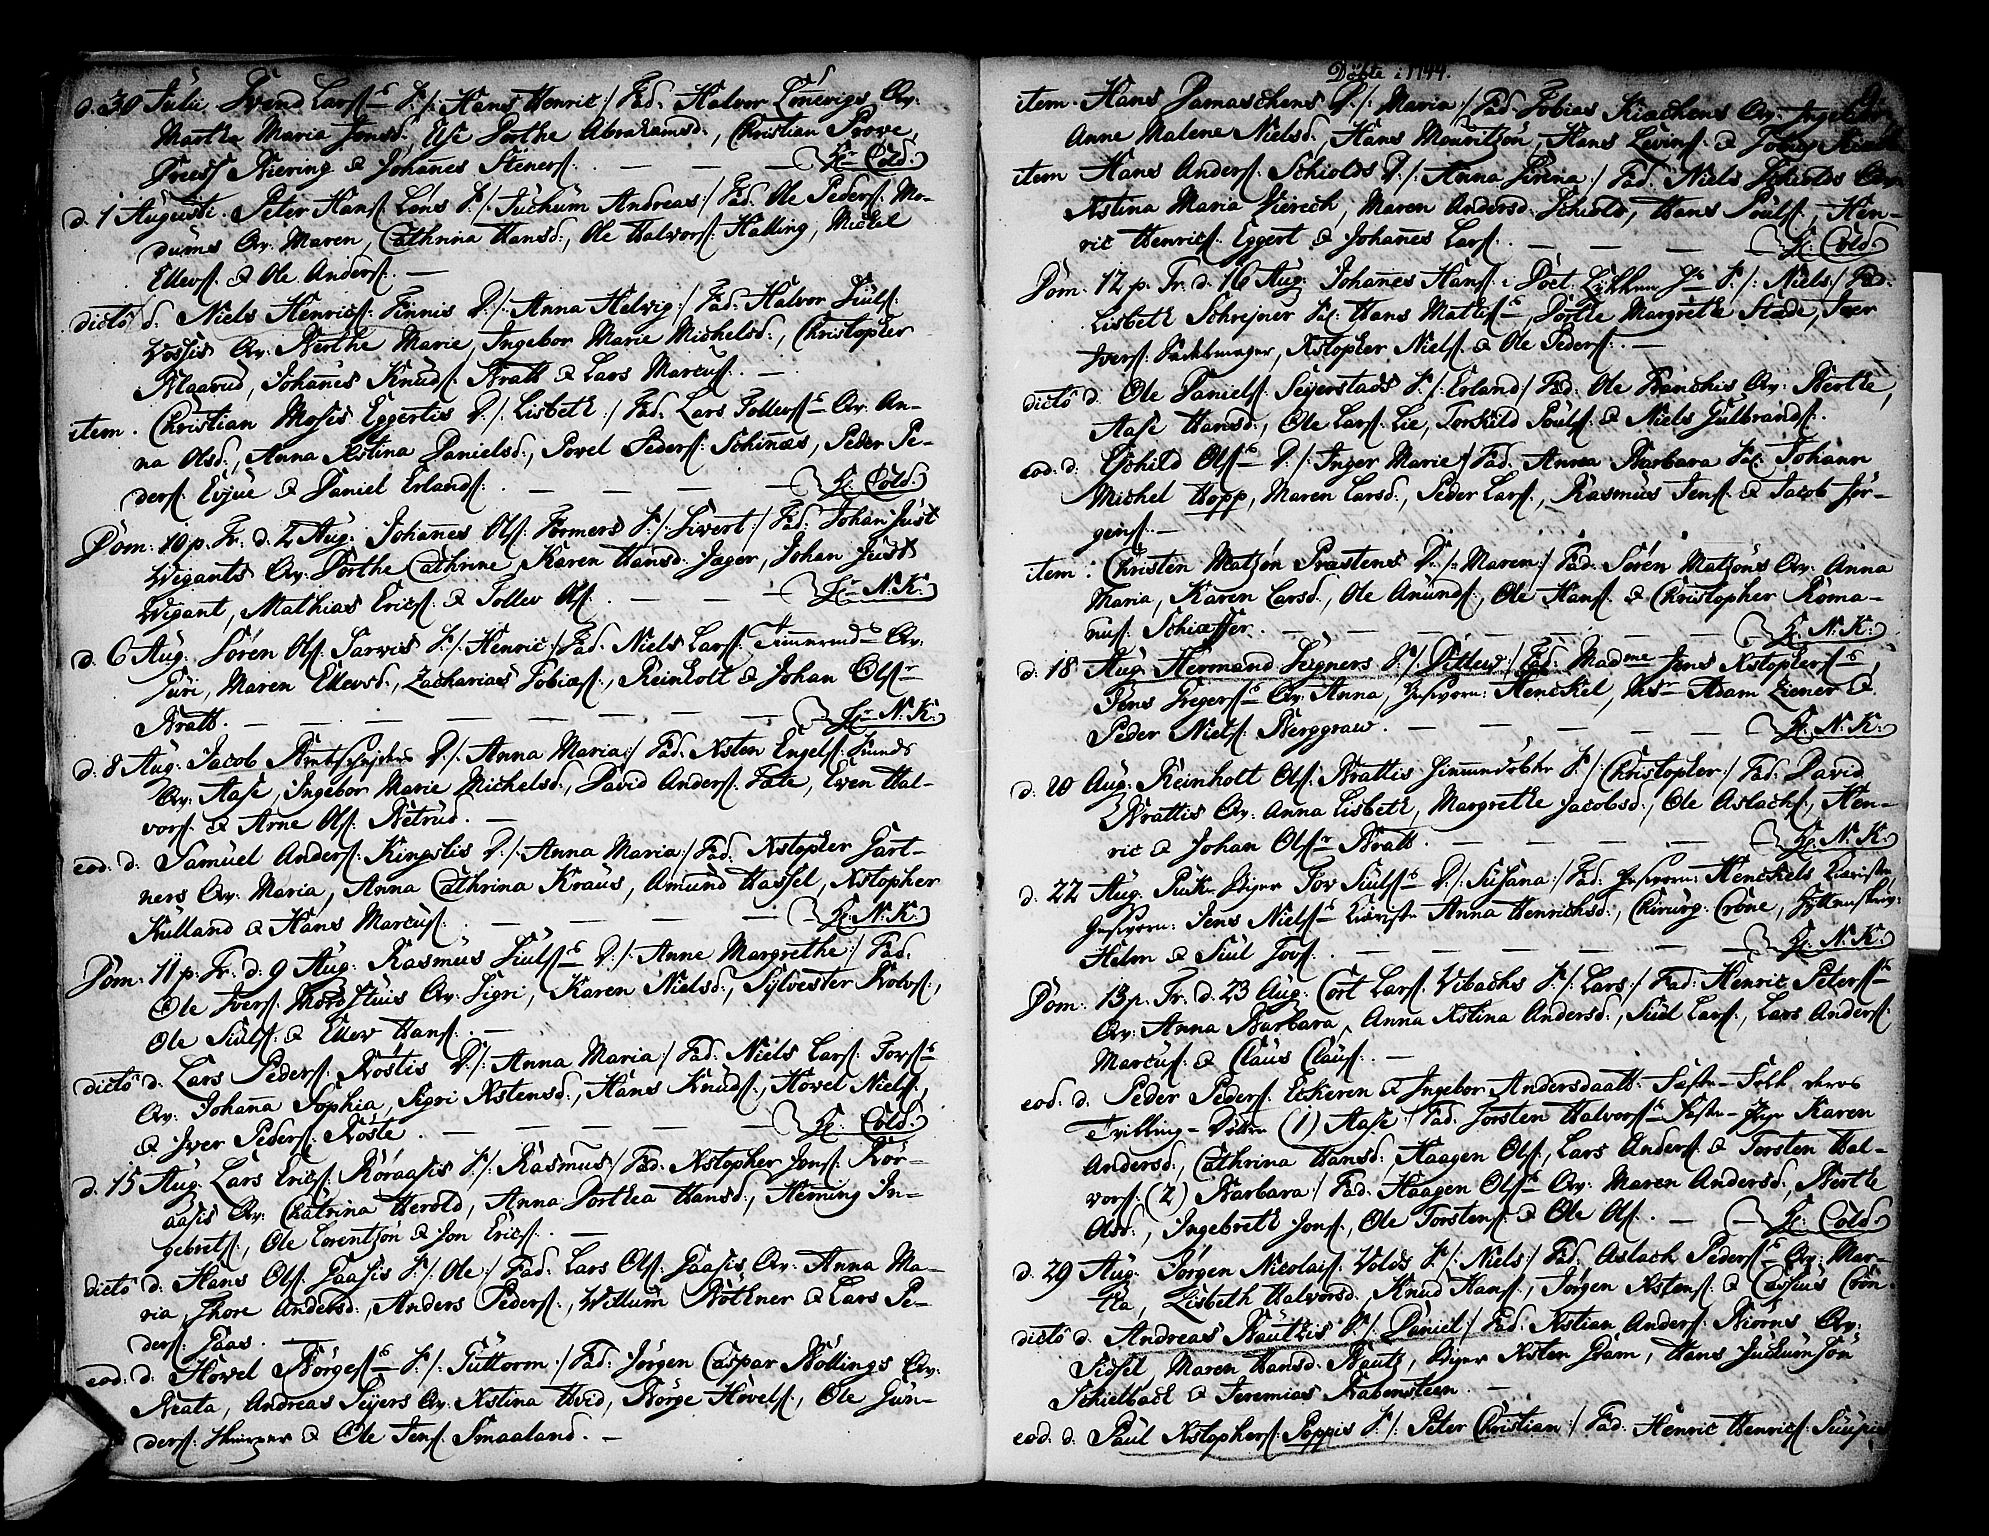 d. 30 Julii Svend Larss. S./: Hans Henric:/ Fad: Halvor Lönevigs Qv:
Martha Maria Jonsd., Else Dorthe Abrahamsd., Christian Povve,
Driess Niering & Johañes Steners. — — — Hr. Cold.
d. 1 Augusti. Peter Hans. Löns S./: Juchum Andreas:/ Fad: Ole Peders. Mo-
dums Qv. Maren, Cathrina Hansd., Ole Halvors. Halling, Michel
Ellevs. & Ole Anders. —
dictô d. Niels Henrics. Finnis D./: Anna Helvig:/ Fad: Halvor Juls.
Vossis Qv: Berthe Marie, Ingebor Marie Michelsd., Christopher
Blaarud, Johañes Knuds. Bratt & Lars Marcus. —
item. Christian Moses Eggertis D./: Lisbeth:/ Fad: Lars Tollevs. Qv: An-
na Olsd., Anna Xstina Danielsd., Povel Peders. Schinæs, Peder Pe-
ders. Evjue & Daniel Erlands. — — — Hr. Cold.
Dom: 10 p. Tr: d. 2 Aug: Johañes Ols. Formers S./: Sivert:/ Fad: Johan Just
Wigants Qv: Dorthe Cathrine, Karen Hansd. Jæger, Johan Just
Wigant, Mathias Erics. & Tollev Ols. — — — Hr. N. K.
d. 6 Aug: Sören Ols. Sarvis S./: Henric:/ Fad: Niels Lars. Qv:
Juri, Maren Ellevsd., Zacharias Tobiæs., Reinholt & Johan Ols.
Bratt. — — — Hr. N. K.
d. 8 Aug: Jacob D./: Anna Maria:/ Fad: Xsten Engels. Lunds
Qv: Aase, Ingebor Marie Michelsd., David Anders. Fate, Even Hal-
vors. & Arne Ols. Betrud. —
eod. d. Samuel Anders. Kingstis D./: Anna Maria:/ Fad: Xstopher Gart-
ners Qv: Maria, Anna Cathrina Kraus, Amund Hassel, Xstopher
Kulland & Hans Marcus. — — — Hr. N. K.
Dom: 11 p. Tr: d. 9 Aug: Rasmus Juls. D./: Anne Margrethe:/ Fad:
Ole Ivers. Qv: Sigri, Karen Nielsd., Sylvester Robs.,
Ole Juls. & Ellev Hans. —
dictô d. Lars Peders. Röstis D./: Anna Maria:/ Fad: Niels Lars. Tors.
Qv: Johaña Sophia, Sigri Xstensd., Hans Knuds., Hovel Niels.,
& Iver Peders. Röste. — — — Hr. Cold.
d. 15 Aug: Lars Erics. Röraasis S./: Rasmus:/ Fad: Xstopher Jons. Rör-
aasis Qv: Chatrina Herold, Anna Dorthea Hansd., Heming In-
gebrets., Ole Lorentzön & Jon Erics. —
dictô d: Hans Ols. Gaasis S./: Ole:/ Fad: Lars Ols. Gaasis Qv: Anna Ma-
ria, Thore Andersd., Anders Peders., Willum Böthner & Lars Pe-
ders. Gaas. —
eod. d. Hovel Börges. S./: Guttorm:/ Fad: Jörgen Caspar Bollings Qv:
Beata, Andreas Seyers Qv: Xstina Hvid, Börge Hövels., Ole Gun-
ders. & Ole Jens. Smaaland. —
Döbte i 1744.
9.
item. Hans Damaschens D./: Maria:/ Fad: Tobias Kiachens Qv:
Anne Malene Nielsd., Hans Mouritzön, Hans Levins. &
item Hans Anders. Schiolds D./: Anna Sirena:/ Fad. Niels Schiolds Qv:
Xstina Maria Vierech, Maren Andersd. Schiold, Hans Pouls., Hen-
ric Henrics. Eggert & Johañes Lars. — — — Hr. Cold.
Dom: 12 p. Tr. d. 16 Aug: Johañes Hans. S./: Niels:/ Fad:
Lisbeth Schrejner Hans Mathes., Dorthe Margrethe Stade, Iver
Ivers. Sadelmager, Xstopher Niels. & Ole Peders. —
dictô d. Ole Daniels. Seyerstads S./: Erland:/ Fad: Ole Franchis Qv: Berthe,
Aase Hansd., Ole Lars. Lie, Torkild Pouls. & Niels Gulbrands.
eod. d. Eschild Ols. D./: Inger Marie:/ Fad: Anna Barbara Johann
Michel Hopp, Maren Larsd., Peder Lars., Rasmus Jens. & Jacob Jör-
gens. —
item: Christen Matzön Præstens D./: Maren:/ Fad: Sören Matzöns Qv: Anna
Maria, Karen Larsd., Ole Anunds., Ole Hans. & Christopher Roma-
nus. Schiæffer. — — — Hr. N. K.
d. 18 Aug: Hermand Segners S./: Ditlew:/ Fad: Madme Jens Xstophers.,
Jens Gregers. Qv: Anna, Henckel, Msr Adam Ziener &
Peder Niels. Berggraw. — — — Hr. N. K.
d. 20 Aug: Reinholt Ols. Brattis S./: Christopher:/ Fad: David
Brattis Qv: Anna Lisbeth, Margrethe Jacobsd., Ole Aslachs., Hen-
ric & Johan Ols. Bratt. — — — Hr. N. K.
d. 22 Aug: Tov Juls. D./: Susana:/ Fad: Henckels
Jens Niels. Anna Henrichsd., Chirurg: Crone,
Helm & Juul Tovs. — — — Hr. N. K.
Dom: 13 p. Tr. d. 23 Aug: Cort Lars. Vibachs S./: Lars:/ Fad: Henric Peters.
Qv: Anna Barbara, Anna Xstina Andersd., Juul Lars., Lars Anders.
Marcus. & Claus Claus. —
eod. d. Peder Peders. Eckeren & Ingebor Andersdaatt: Fæste-Folk deres
Tvilling-Döttre (1) Aase:/ Fad: Torsten Halvors. Fæste-Pige Karen
Andersd., Cathrina Hansd., Haagen Ols., Lars Anders. & Torsten Hal-
vors. (2) Barbara:/ Fad: Haagen Ols. Qv: Maren Andersd., Berthe
Olsd., Ingebreth Jons., Ole Torstens. & Ole Ols. — — Hr. Cold.
d. 29 Aug: Jörgen Nicolais. Volds S./: Niels:/ Fad: Aslach Peders. Qv: Mar-
tha, Lisbeth Halvorsd., Knud Hans., Jörgen Xstens. & Casius Crön.
dictô d. Andreas Bautzis S./: Daniel:/ Fad: Xstian Anders. Biörns Qv:
Sidsel, Maren Hansd. Bautz, Xsten Gram, Hans Juchumsön
Schielback & Jeremias Rabensteen. —
eod: d. Paul Xstophers. Poppis S./: Peter Christian:/ Fad: Henric Henrics.